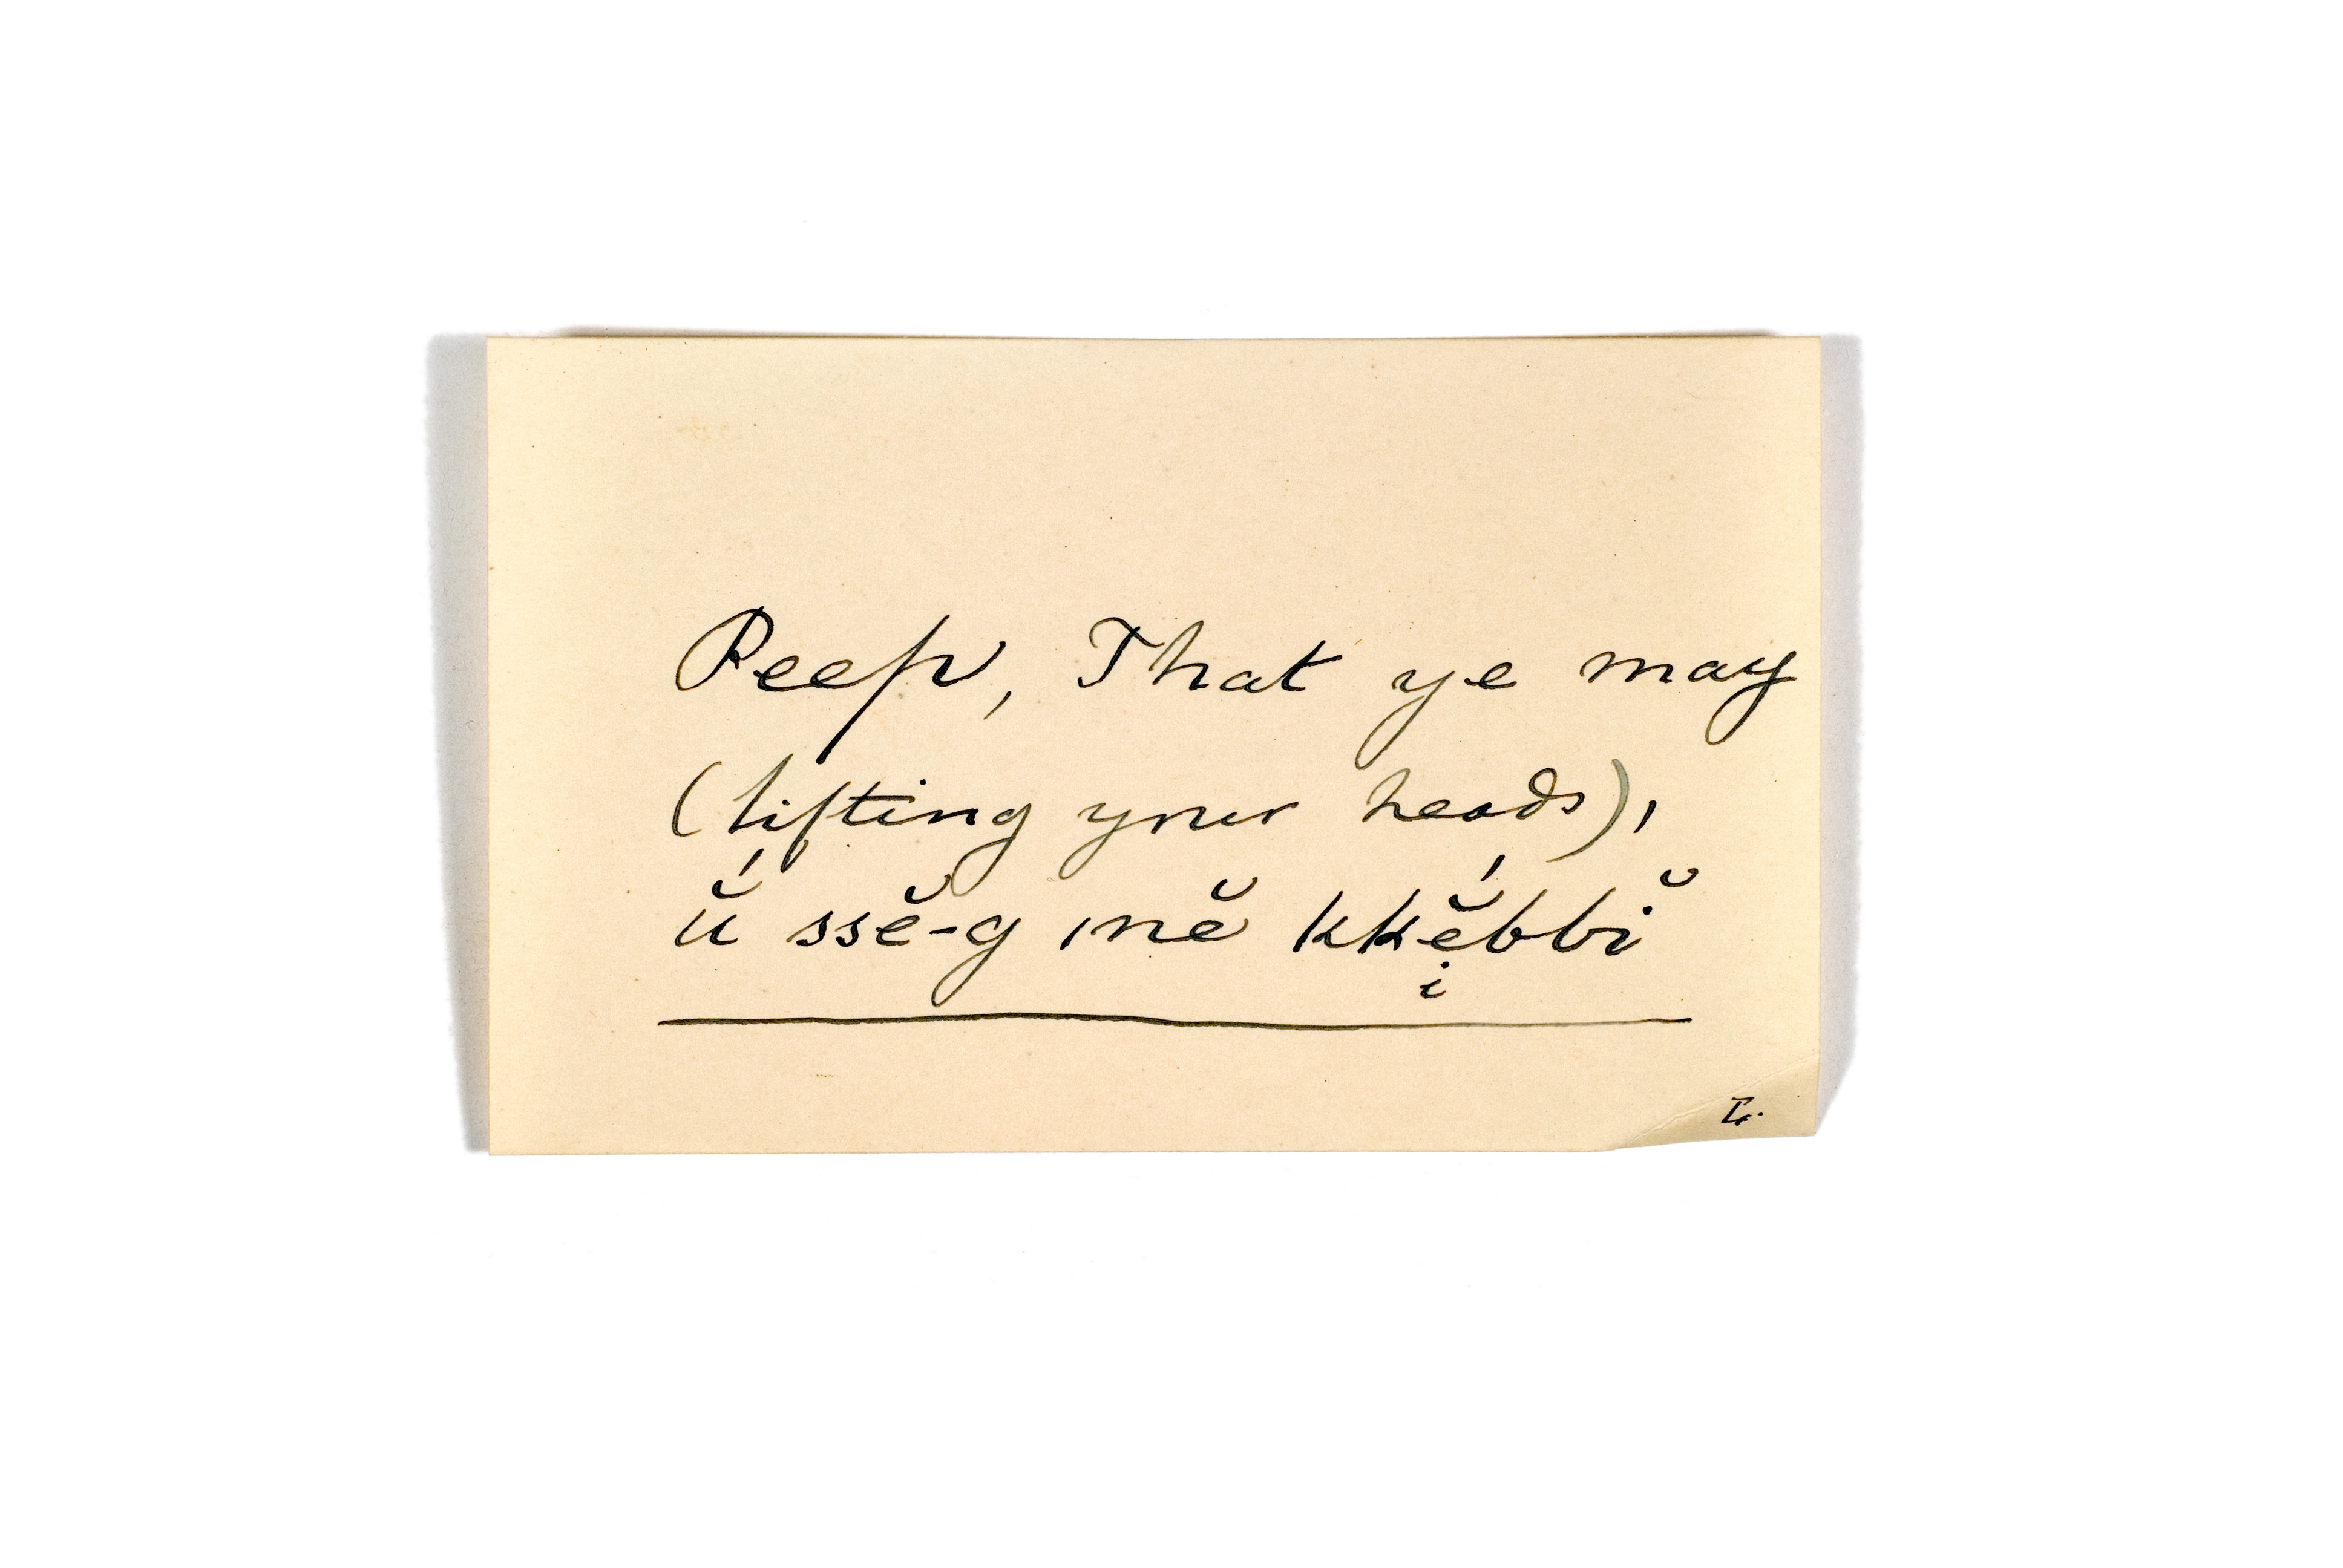 Peep, That ye may
(lifting your heads),
ŭ́ ssĕ-g ınĕ kkẹ̆́bbĭ
i
L.